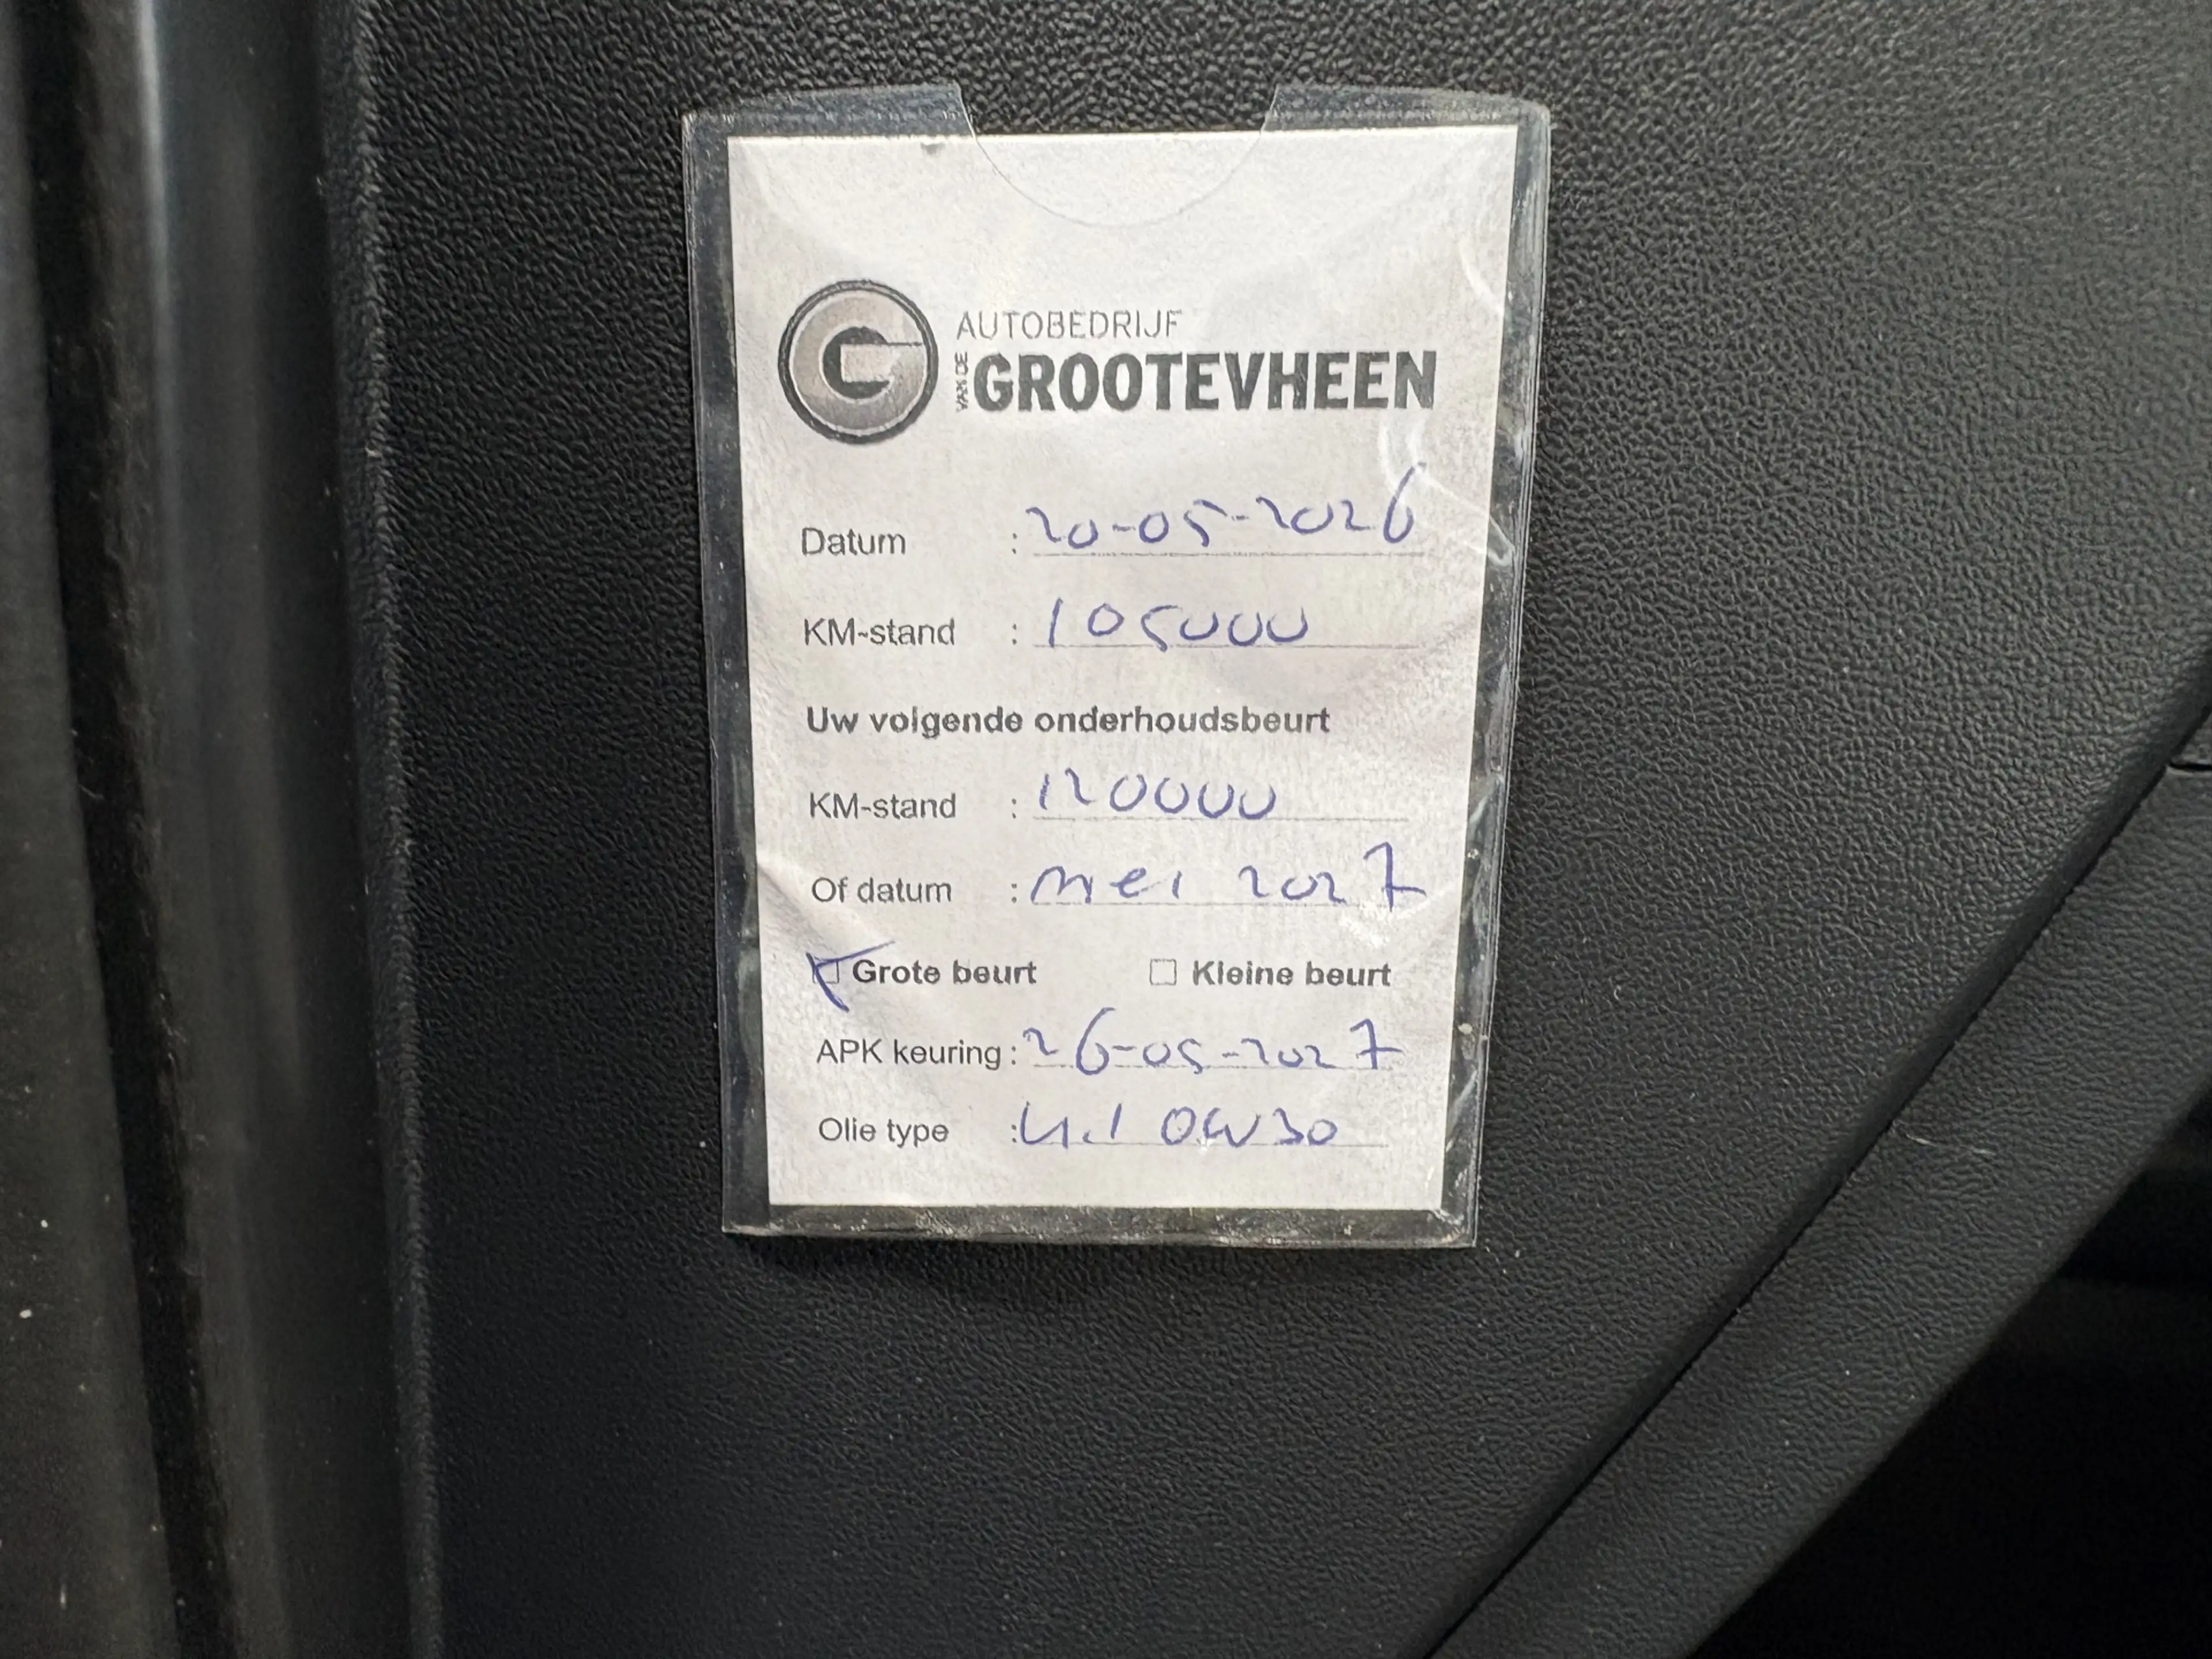 AUTOBEDRIJF
VAN DE GROOTEVHEEN
Datum : 20-05-2026
KM-stand : 105000
Uw volgende onderhoudsbeurt
KM-stand : 120000
Of datum : mei 2027
Grote beurt Kleine beurt
APK keuring : 26-05-2027
Olie type : 4.1 0W30